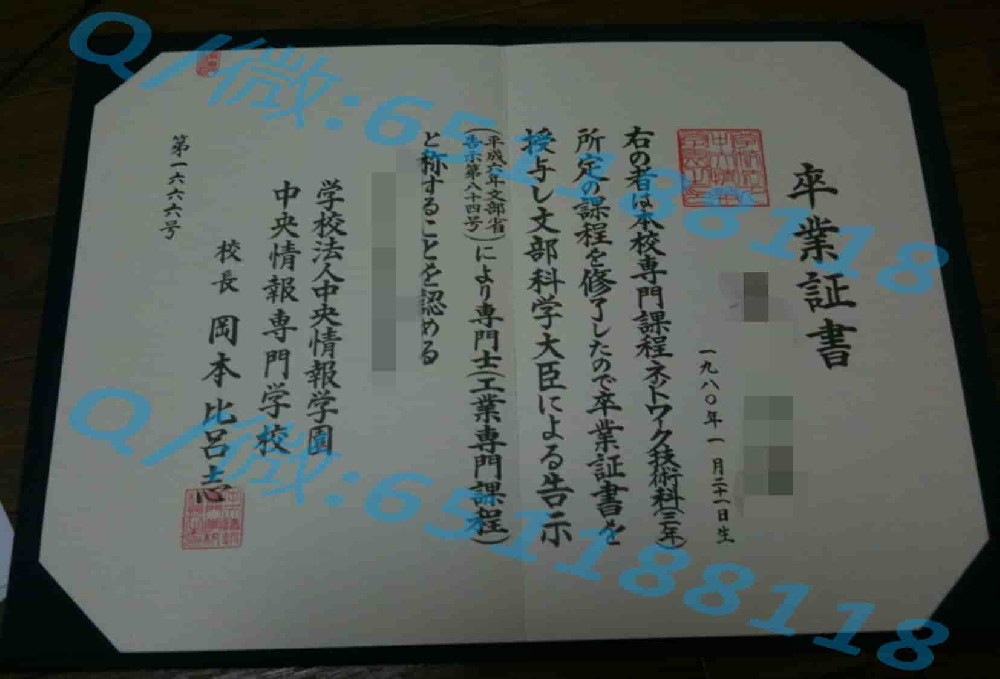 卒業証書
一九八〇年一月二十一日生
右の者は本校専門課程ネットワーク技術科(三年)
所定の課程を修了したので卒業証書を
授与し文部科学大臣による告示
(平成六年文部省告示第八十四号)により専門士(工業専門課程)
と称することを認める
学校法人中央情報学園
中央情報専門学校
校長 岡本比呂志
第一六六六号
Q/微:651188118
Q/微:651188118